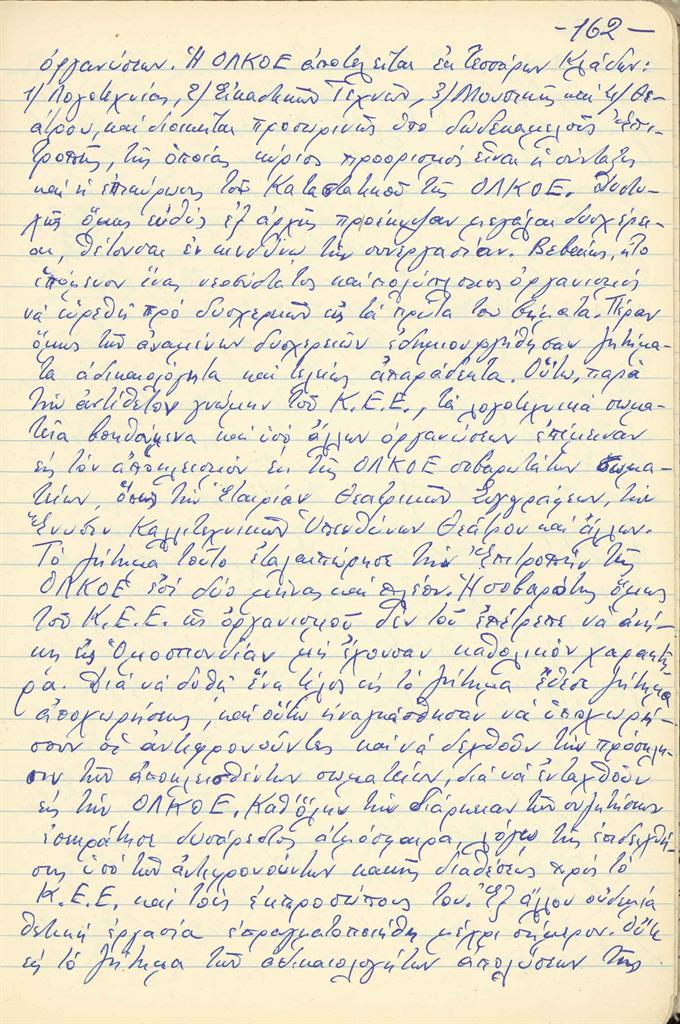 -162-
ὀργανώσεων. Ἡ ΟΛΚΟΕ ἀποτελεῖται ἐκ τεσσάρων Κλάδων:
1/ Λογοτεχνίας, 2/ Εἰκαστικῶν Τεχνῶν, 3/ Μουσικῆς καὶ 4/ Θε-
άτρου, καὶ διοικεῖται προσωρινῶς ὑπὸ δωδεκαμελοῦς Ἐπι-
τροπῆς, τῆς ὁποίας κύριος προορισμὸς εἶναι ἡ σύνταξις
καὶ ἡ ἐπικύρωσις τοῦ Καταστατικοῦ τῆς ΟΛΚΟΕ. Δυστυ-
χῶς ὅμως εὐθὺς ἐξ ἀρχῆς προέκυψαν μεγάλαι δυσχέρει-
αι, θέτουσαι ἐν κινδύνῳ τὴν συνεργασίαν. Βεβαίως, ἦτο
ἑπόμενον ἕνας νεοσύστατος καὶ πολύπλοκος ὀργανισμὸς
νὰ εὑρεθῇ πρὸ δυσχερειῶν εἰς τὰ πρῶτα του βήματα. Πέραν
ὅμως τῶν ἀναμενομένων δυσχερειῶν ἐδημιουργήθησαν ζητήμα-
τα ἀδικαιολόγητα καὶ τελείως ἀπαράδεκτα. Οὕτω, παρὰ
τὴν ἀντίθετον γνώμην τοῦ Κ.Ε.Ε., τὰ λογοτεχνικὰ σωμα-
τεῖα βοηθούμενα καὶ ὑπὸ ἄλλων ὀργανώσεων ἐπέμειναν
εἰς τὸν ἀποκλεισμὸν ἐκ τῆς ΟΛΚΟΕ σοβαρωτάτων σωμα-
τείων, ὅπως τὴν Ἑταιρίαν Θεατρικῶν Συγγραφέων, τὴν
Ἕνωσιν Καλλιτεχνικῶν Ὑπευθύνων Θεάτρου καὶ ἄλλων.
Τὸ ζήτημα τοῦτο ἐταλαιπώρησε τὴν Ἐπιτροπὴν τῆς
ΟΛΚΟΕ ἐπὶ δύο μῆνας καὶ πλέον. Ἡ σοβαρότης ὅμως
τοῦ Κ.Ε.Ε. ὡς ὀργανισμοῦ δὲν τοῦ ἐπέτρεπε νὰ ἀνή-
κῃ εἰς Ὁμοσπονδίαν μὴ ἔχουσαν καθολικὸν χαρακτῆ-
ρα. Διὰ νὰ δοθῇ ἕνα τέλος εἰς τὸ ζήτημα ἔθεσε ζήτημα
ἀποχωρήσεως, καὶ οὕτω ἠναγκάσθησαν νὰ ὑποχωρή-
σουν οἱ ἀντιφρονοῦντες καὶ νὰ δεχθοῦν τὴν πρόσκλη-
σιν τῶν ἀποκλεισθέντων σωματείων, διὰ νὰ ἐνταχθοῦν
εἰς τὴν ΟΛΚΟΕ. Καθ' ὅλην τὴν διάρκειαν τῶν συζητήσεων
ἐπεκράτησε δυσάρεστος ἀτμόσφαιρα, λόγῳ τῆς ἐπιδειχθεί-
σης ὑπὸ τῶν ἀντιφρονούντων κακῆς διαθέσεως πρὸς τὸ
Κ.Ε.Ε. καὶ τοὺς ἐκπροσώπους του. Ἐξ ἄλλου οὐδεμία
θετικὴ ἐργασία ἐπραγματοποιήθη μέχρι σήμερον. Οὔτε
εἰς τὸ ζήτημα τῶν ἀδικαιολογήτων ἀπολύσεων τῆς